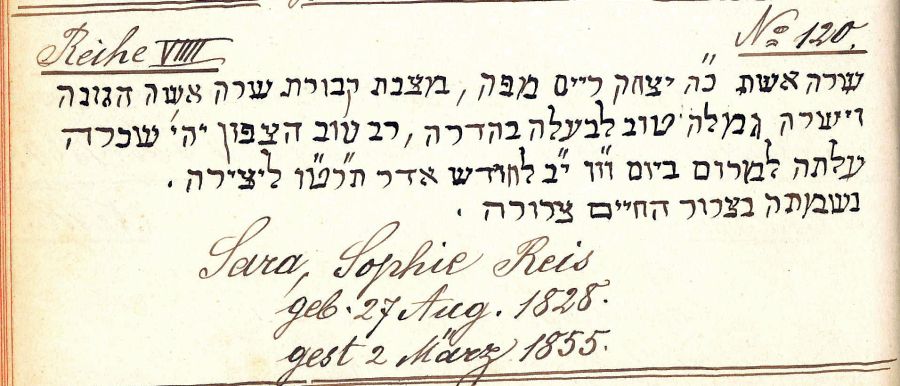 Reihe VIIII
No 120.
שרה אשת כ"ה יצחק ריים מפה, מצבת קבורת שרה אשה הגונה
וישרה גמלה טוב לבעלה בהדרה, רב טוב הצפון יהי' שכרה
עלתה למרום ביום ו"ו י"ב לחודש אדר תרט"ו ליצירה.
נשמתה בצרור החיים צרורה.
Sara, Sophie Reis
geb. 27 Aug. 1828.
gest 2 März 1855.